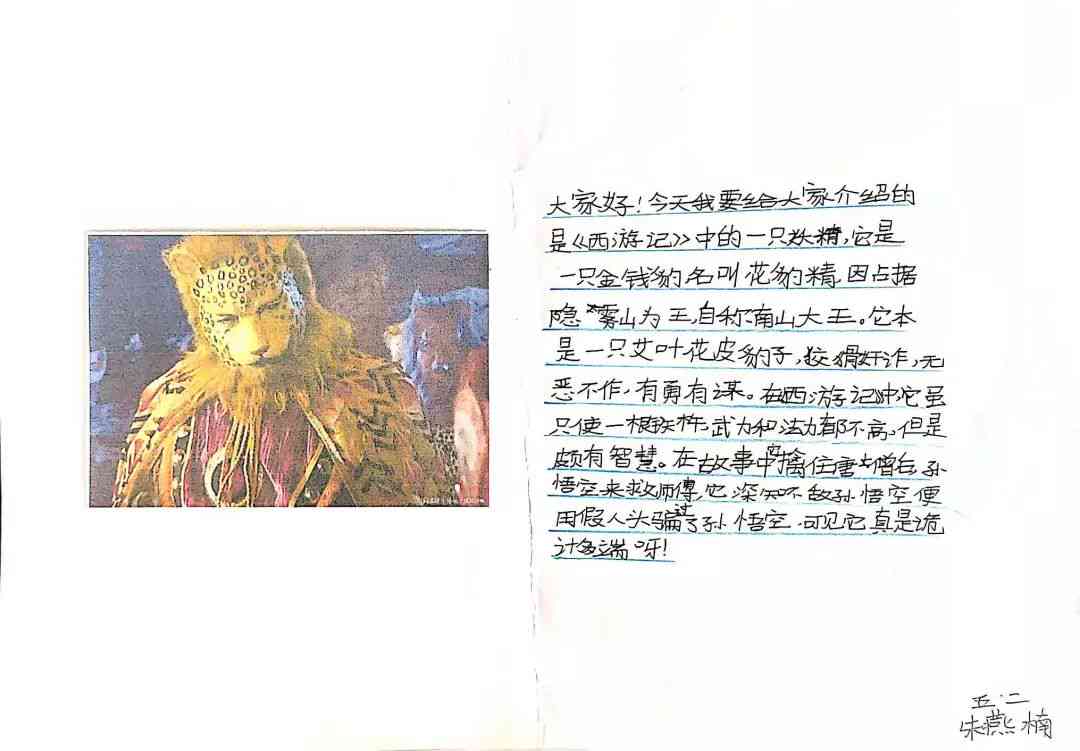 大家好！今天我要给大家介绍的
是《西游记》中的一只妖精，它是
一只金钱豹名叫花豹精，因占据
隐雾山为王，自称南山大王。它本
是一只艾叶花皮豹子，狡猾奸诈，无
恶不作，有勇有谋。在西游记中它虽
只使一根铁杵，武力和法力都不高，但是
颇有智慧。在故事中它擒住唐僧后，孙
悟空来救师傅，它深知不敌孙悟空，便
用假人头骗过了孙悟空，可见它真是诡
计多端呀！
五·二
朱燕楠